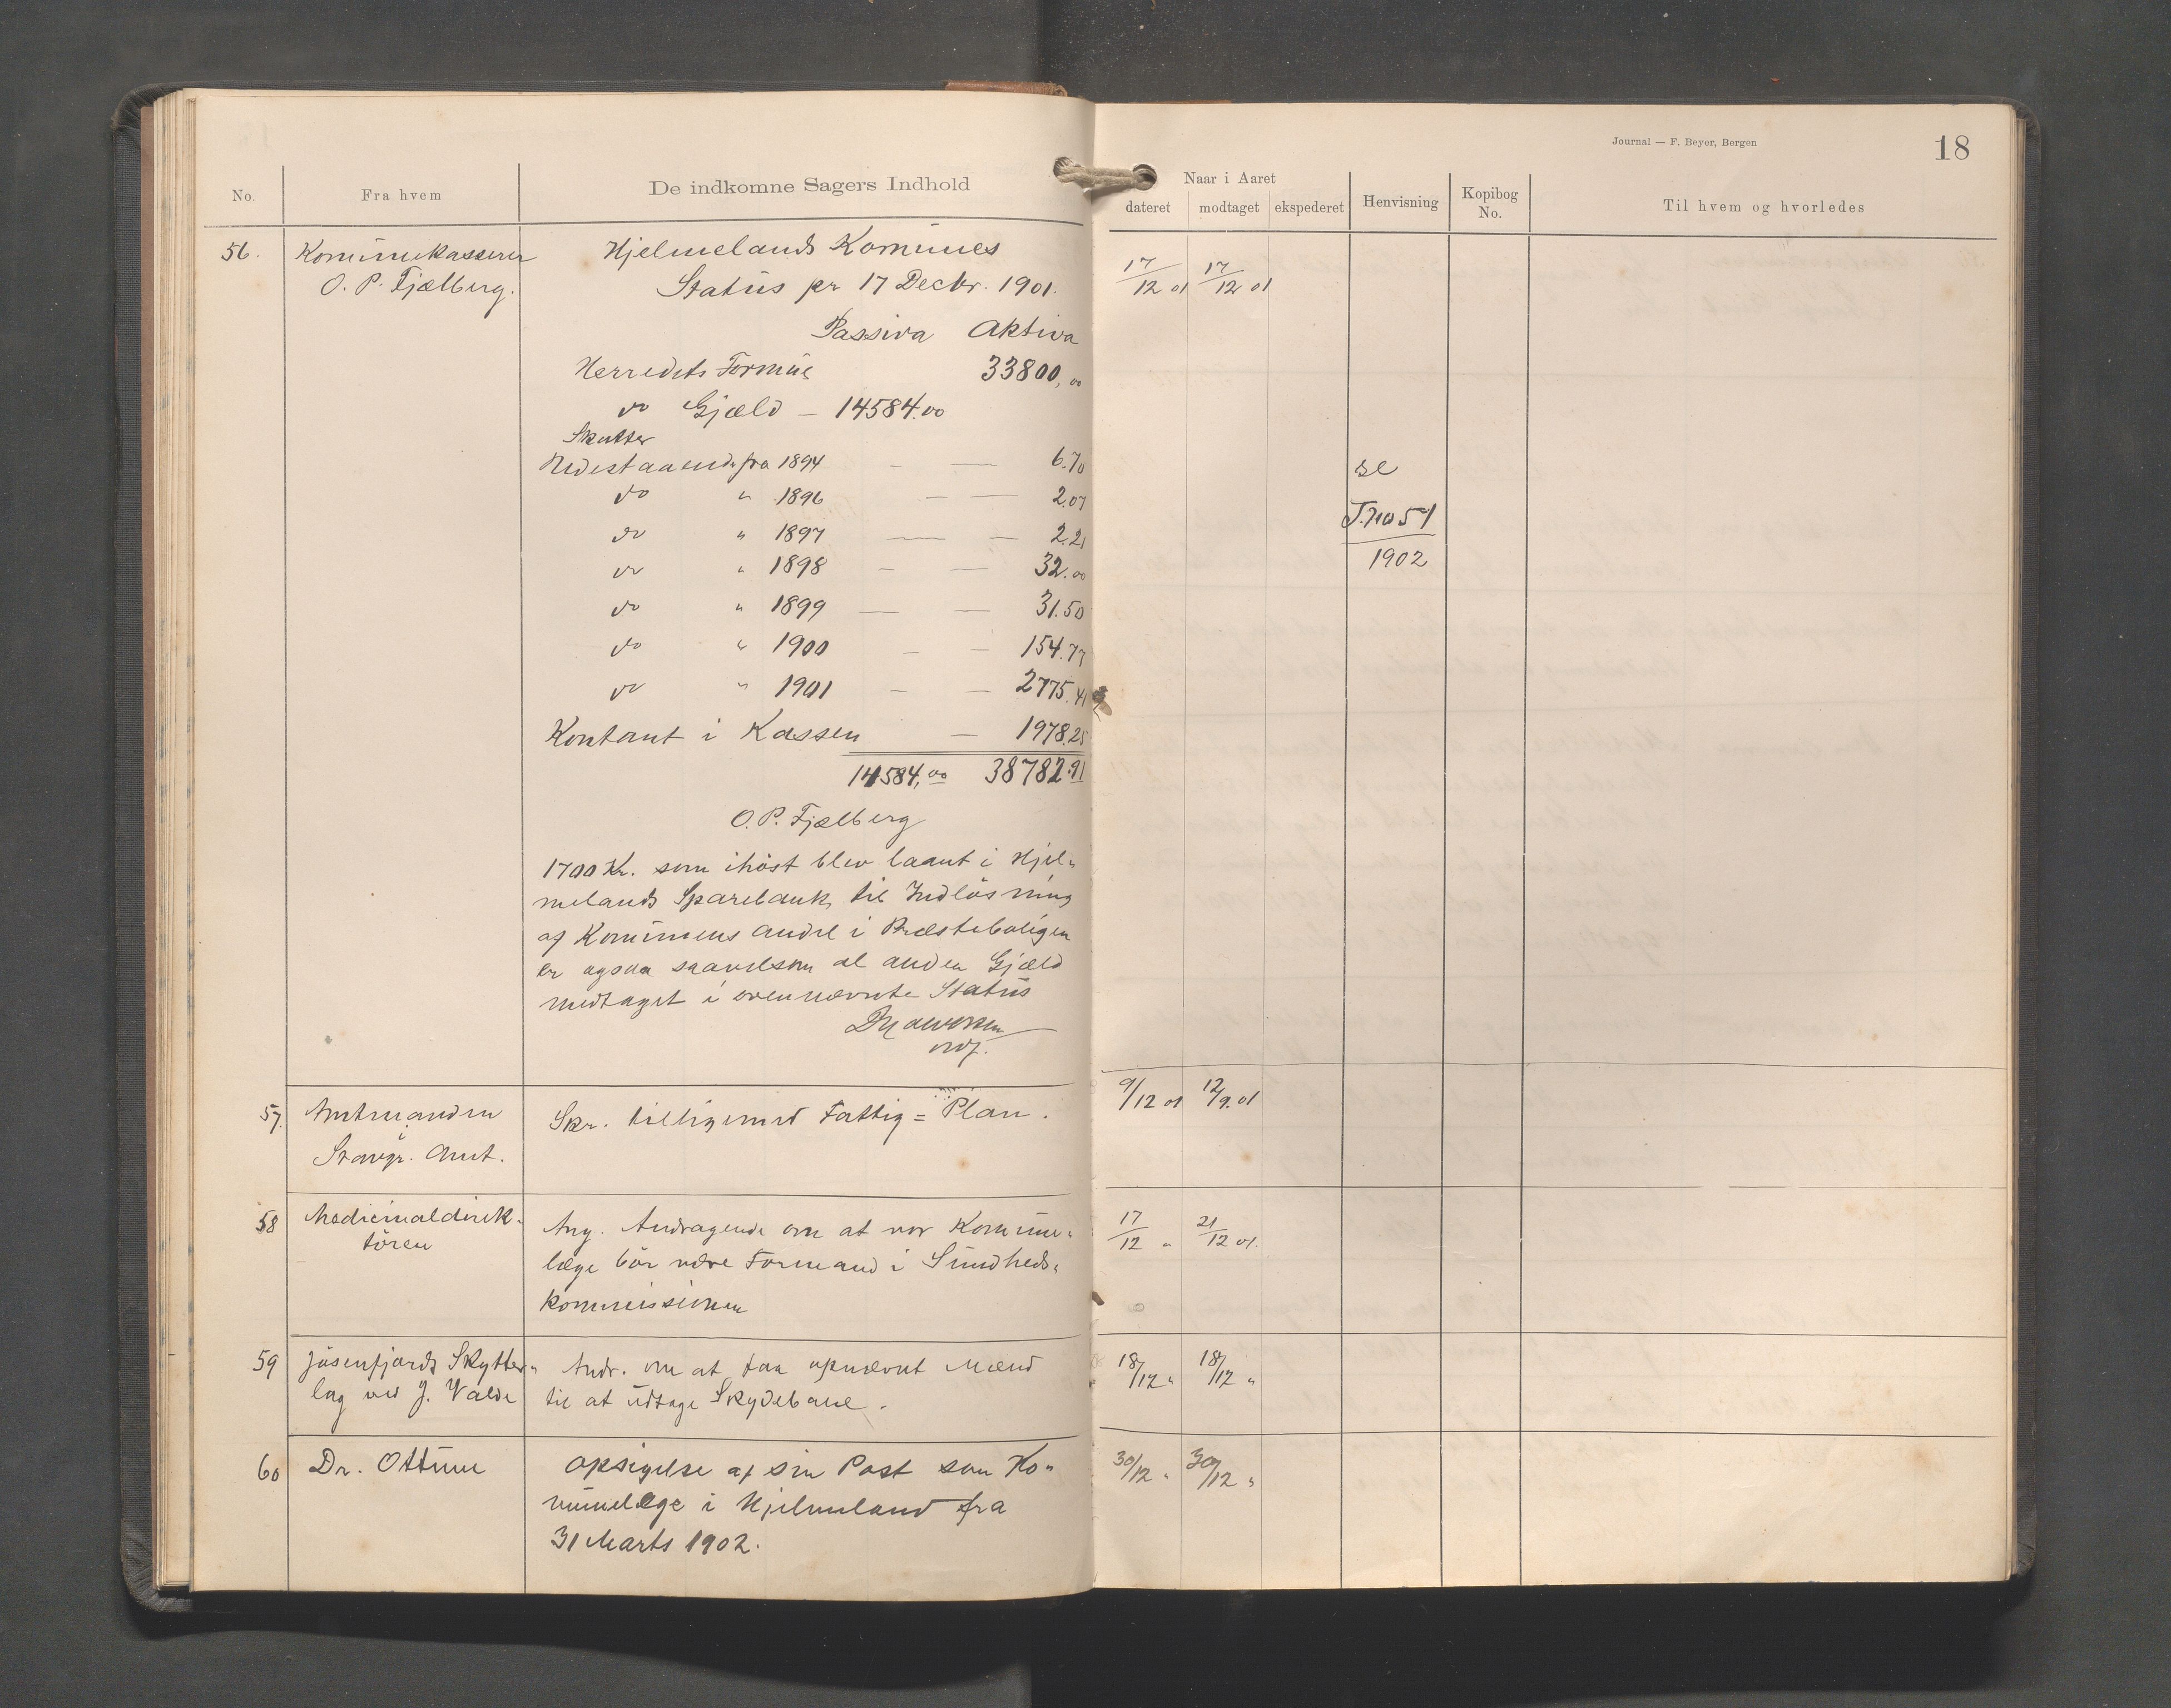 Journal — F. Beyer, Bergen
18
No.
Fra hvem
De indkomne Sagers Indhold
Naar i Aaret
dateret modtaget ekspederet
Henvisning
Kopibog
No.
Til hvem og hvorledes
56. Kommunekasserer
O. P. Fjælberg.
Hjelmelands Kommunes
Status pr 17 Decbr. 1901.
17/12 01 17/12 01
Passiva Aktiva
Herredets Formue 33800,00
do Gjæld — 14584.00
Skatter
Udestaaende fra 1894 — — 6.70
do " 1896 — — 2.07
do " 1897 — — 2.21
do " 1898 — — 32.00
do " 1899 — — 31.50
do " 1900 — — 154.77
do " 1901 — — 2775.41
se
J.no 51
1902
Kontant i Kassen — 1978.25
14584,00 38782.91
O. P. Fjælberg
1700 Kr. som ihöst blev laant i Hjel-
melands Sparebank til Indlösning
af Kommunens Andel i Præsteboligen
er ogsaa saavelsom al anden Gjæld
medtaget i ovennævnte Status
ordf.
57. Amtmanden
Stavgr. Amt.
Skr. tilligemed Fattig = Plan.
9/12 01 12/9. 01
58 Medicinaldirek-
tören
Ang. Andragende om at vor Kommune-
læge bör være Formand i Sundheds-
kommissionen
17/12 " 21/12 01.
59 Jösenfjords Skytter-
lag ved J. Valde
Andr. om at faa opnævnt Mænd
til at udtage Skydebane.
18/12 " 18/12 "
60 Dr. Ottune
Opsigelse af sin Post som Ko-
mmunelæge i Hjelmeland fra
31 Marts 1902.
30/12 " 30/12 "